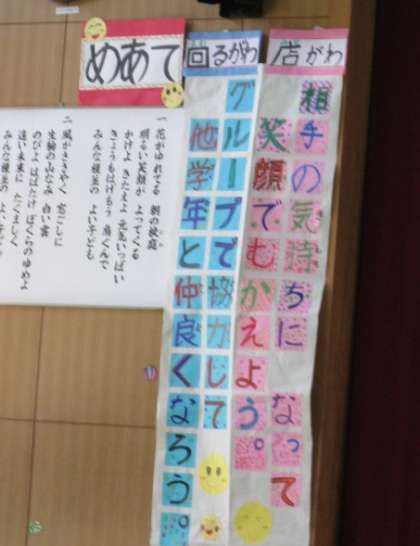 めあて
店がわ
相手の気持ちになって
笑顔でむかえよう。
回るがわ
グループで協力して
他学年と仲良くなろう。
一 花がゆれてる 朝の校庭
明るい笑顔が よってくる
かけよ きたえよ 元気いっぱい
きょうもはげもう 肩くんで
みんな榎並の よい子ども
二 風がささやく 窓ごしに
生駒の山なみ 白い雲
のびよ はばたけ ぼくらのゆめよ
遠い未来に たくましく
みんな榎並の よい子ども